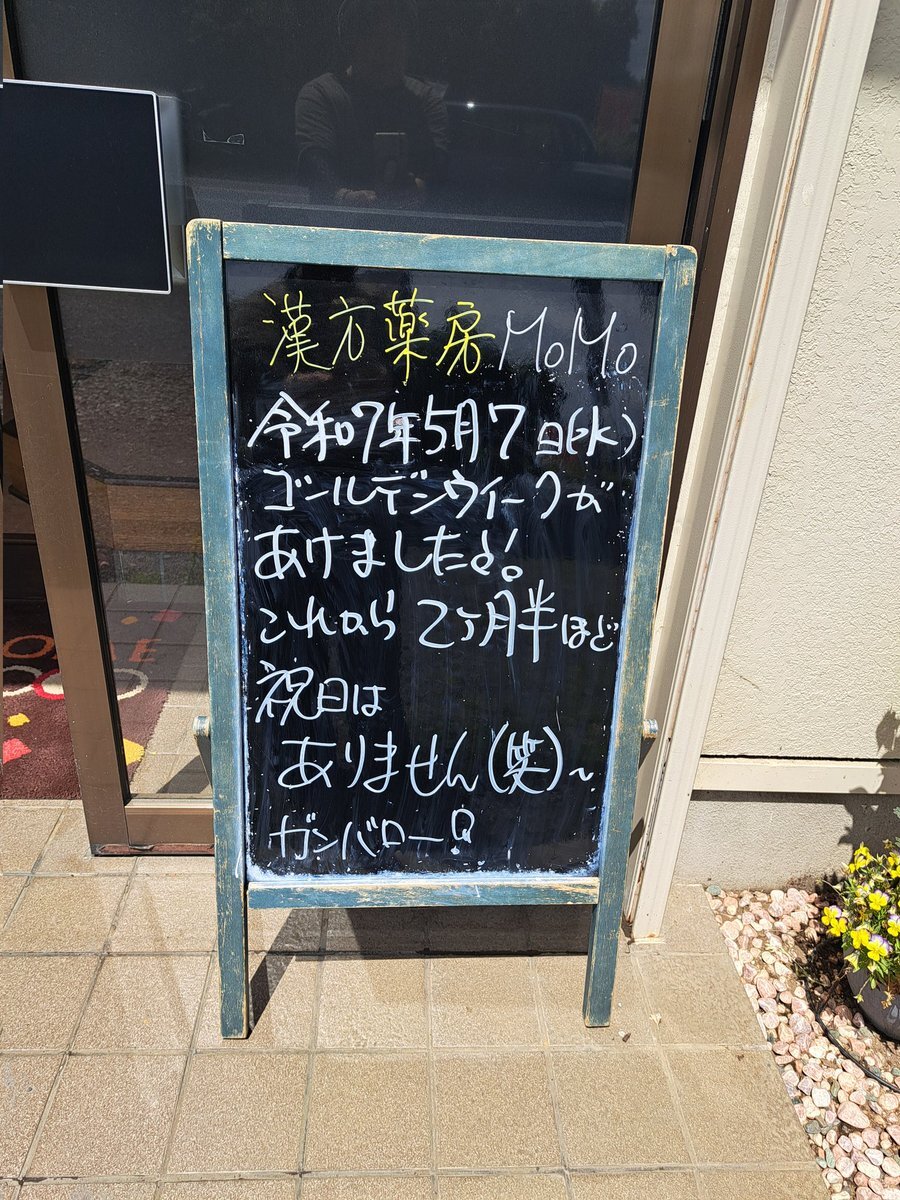 漢方薬房 MoMo
令和7年5月7日(水)
ゴールデンウィークが
あけましたよ!
これから 2ヶ月半ほど
祝日は
ありません(笑)~
ガンバロー!